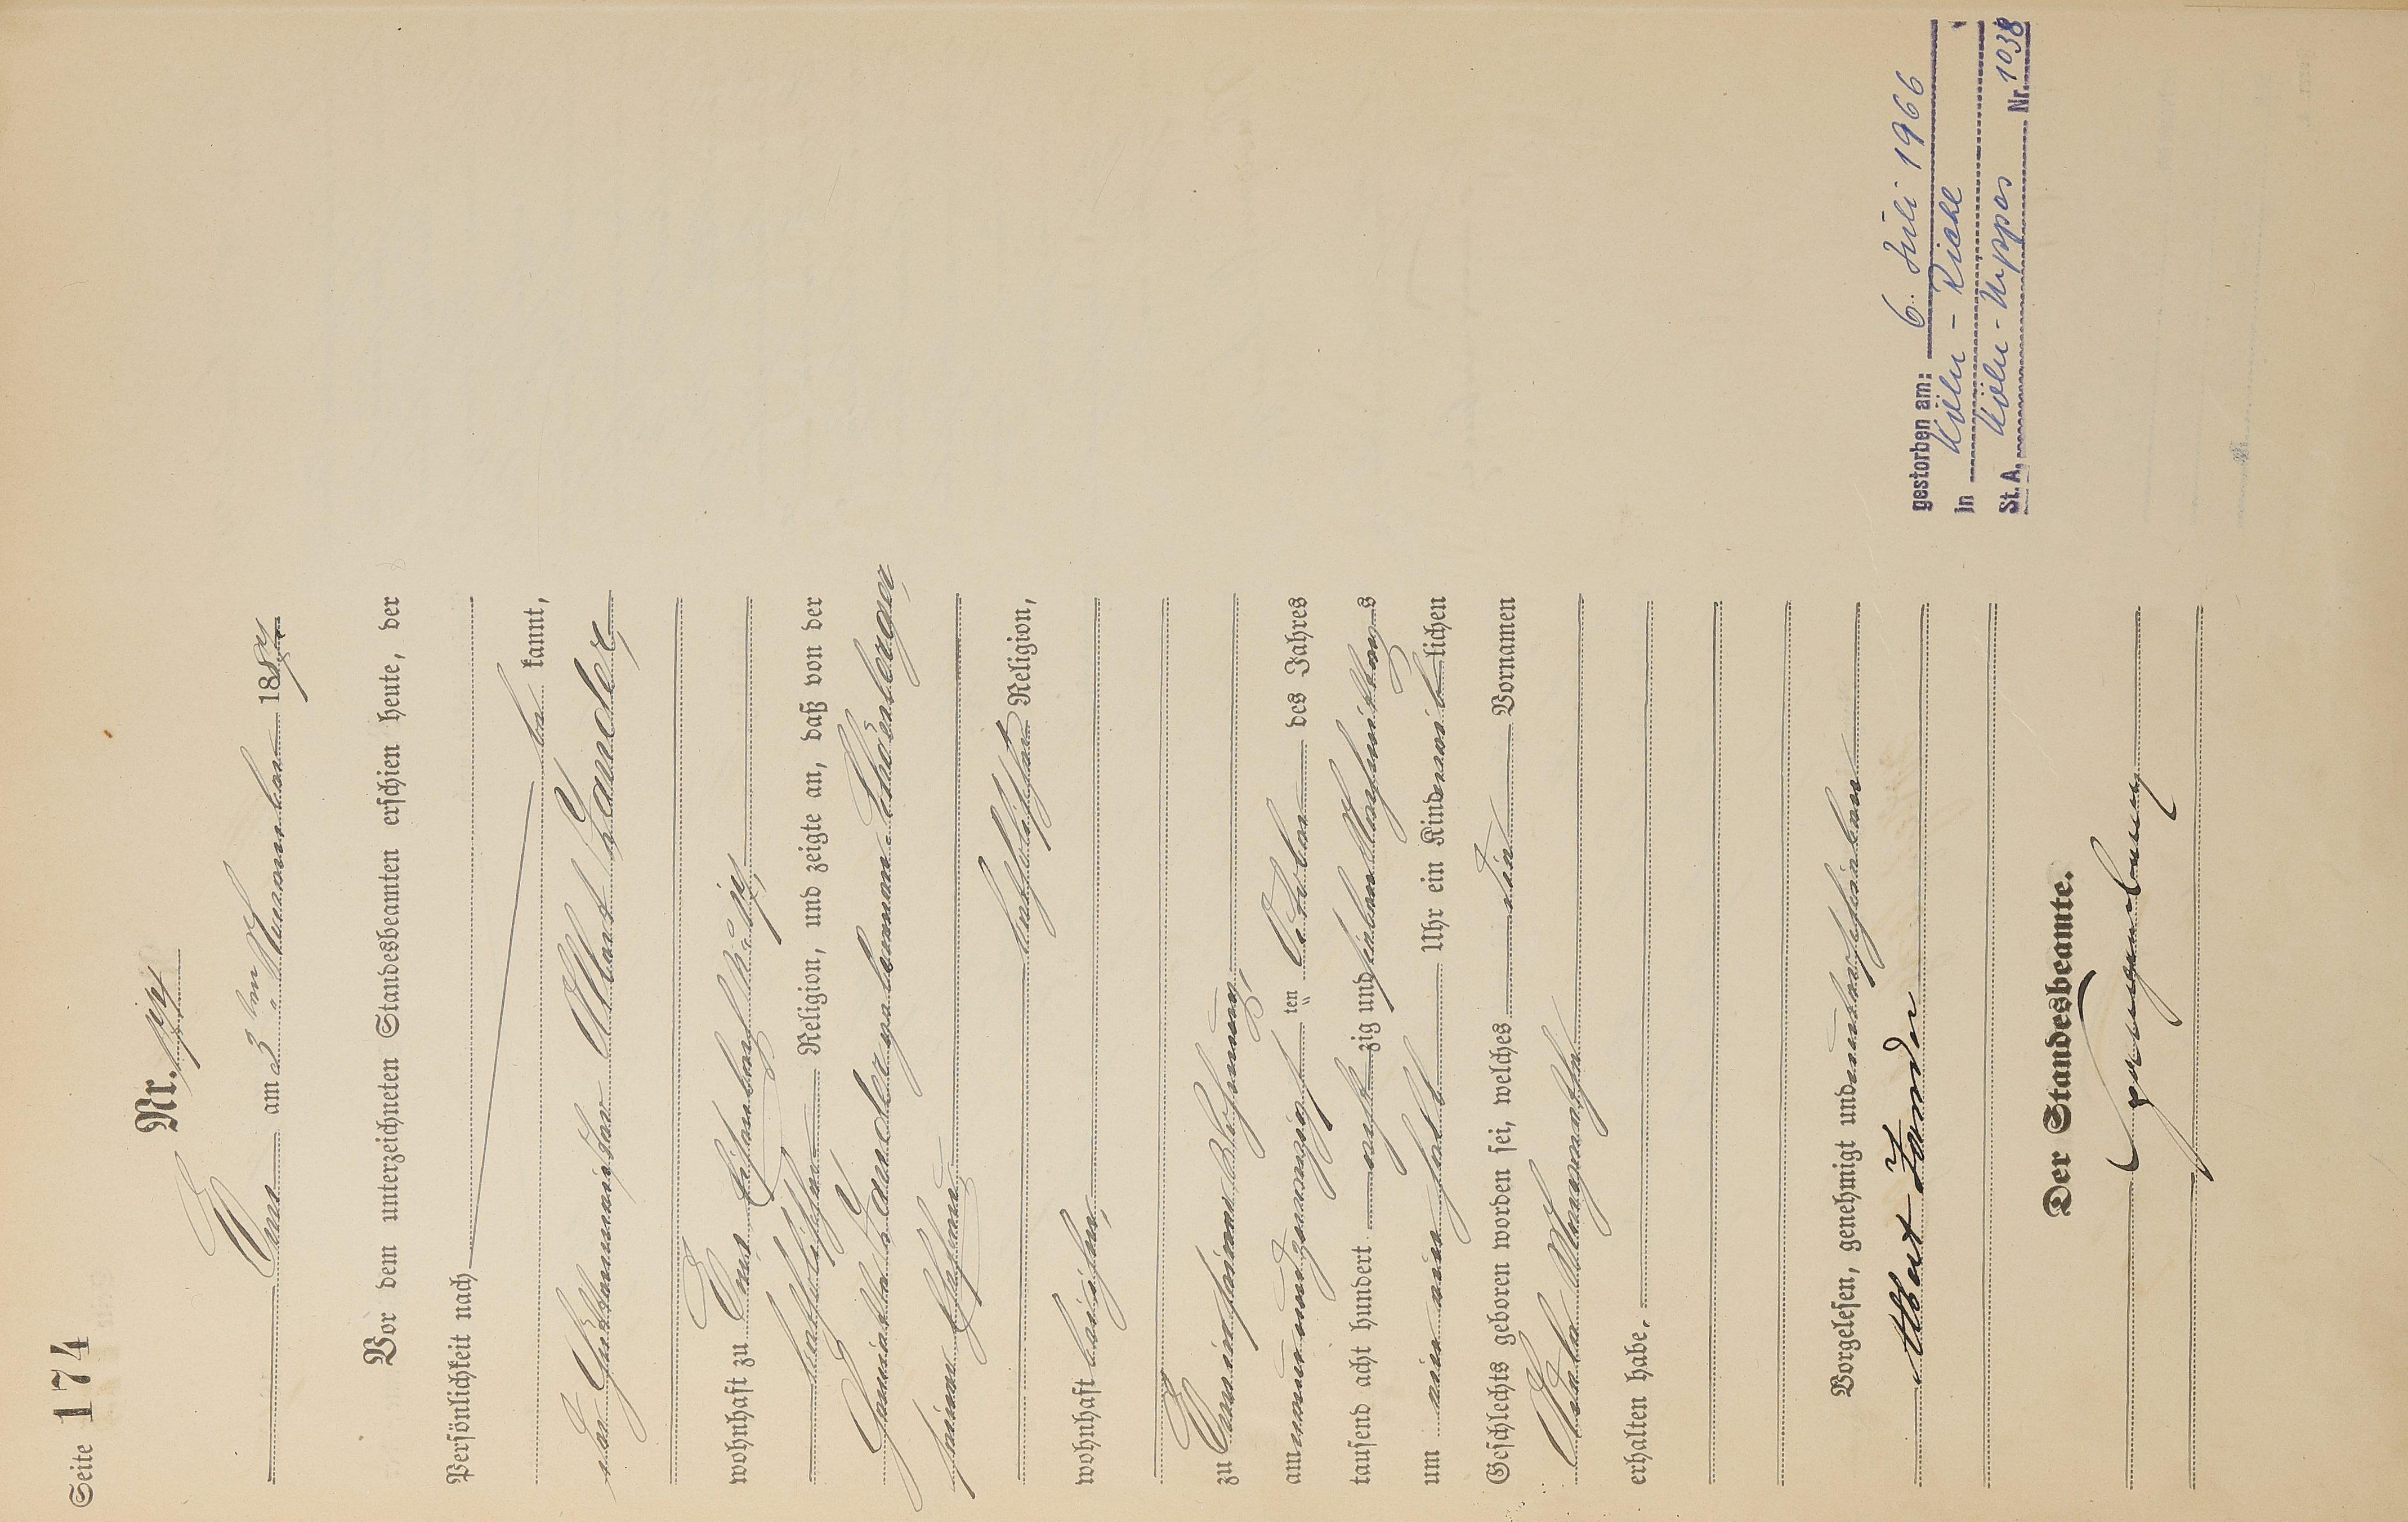 Seite 174
Nr. 174
Ems am 3ten November 1887
Vor dem unterzeichneten Standesbeamten erschien heute, der
Persönlichkeit nach
be kannt,
der Hüttenmeister Albert Zander,
wohnhaft zu Ems
katholischer Religion, und zeigte an, daß von der
Zander geborenen
seiner Ehefrau,
katholischer Religion,
wohnhaft bei ihm,
zu Ems in seiner Wohnung,
am neunundzwanzigsten ten October des Jahres
tausend acht hundert acht zig und sieben Vormittags
um ein ein halb Uhr ein Kind weib lichen
Geschlechts geboren worden sei, welches die Vornamen
Adele Margarethe
erhalten habe.
Vorgelesen, genehmigt und unterschrieben
Albert Zander
Der Standesbeamte.
gestorben am: 6. Juli 1966
in Köln - Riehl
St. A. Köln - Nippes Nr. 1038